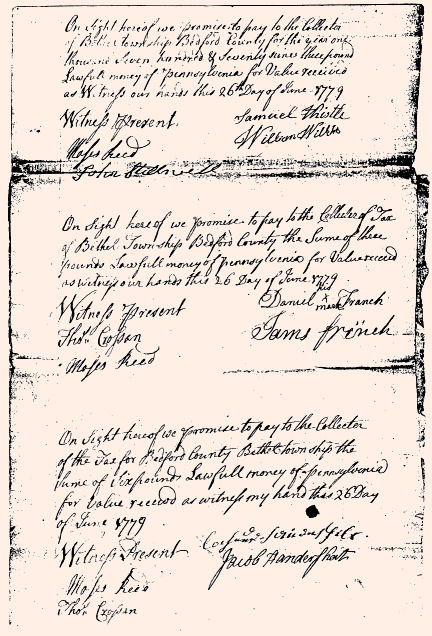 On Sight hereof we promise to pay to the Collector
of Bethel Township Bedford County for the year one
thousand Seven hundred & Seventy nine three pound
Lawfull money of Pennsylvenia for Value received
as Witness our hands this 26th Day of June 1779
Witness Present
Samuel Thistle
Moses Reed
John Stillwell
On Sight hereof we promise to pay to the Collector of Tax
of Bethel Township Bedford County the Sume of three
pounds Lawfull money of Pennsylvenia for Value received
as witness our hands this 26 Day of June 1779
Witness Present
his
Daniel X Franch
mark
Thos Crossan
Jams french
Moses Reed
On Sight hereof we promise to pay to the Collector
of the Tax for Bedford County Bethel township the
Sume of Six pounds Lawfull money of Pennsylvania
for Value received as witness my hand this 26 Day
of June 1779
Witness Present
Jacob
Moses Reed
Thos Crossan